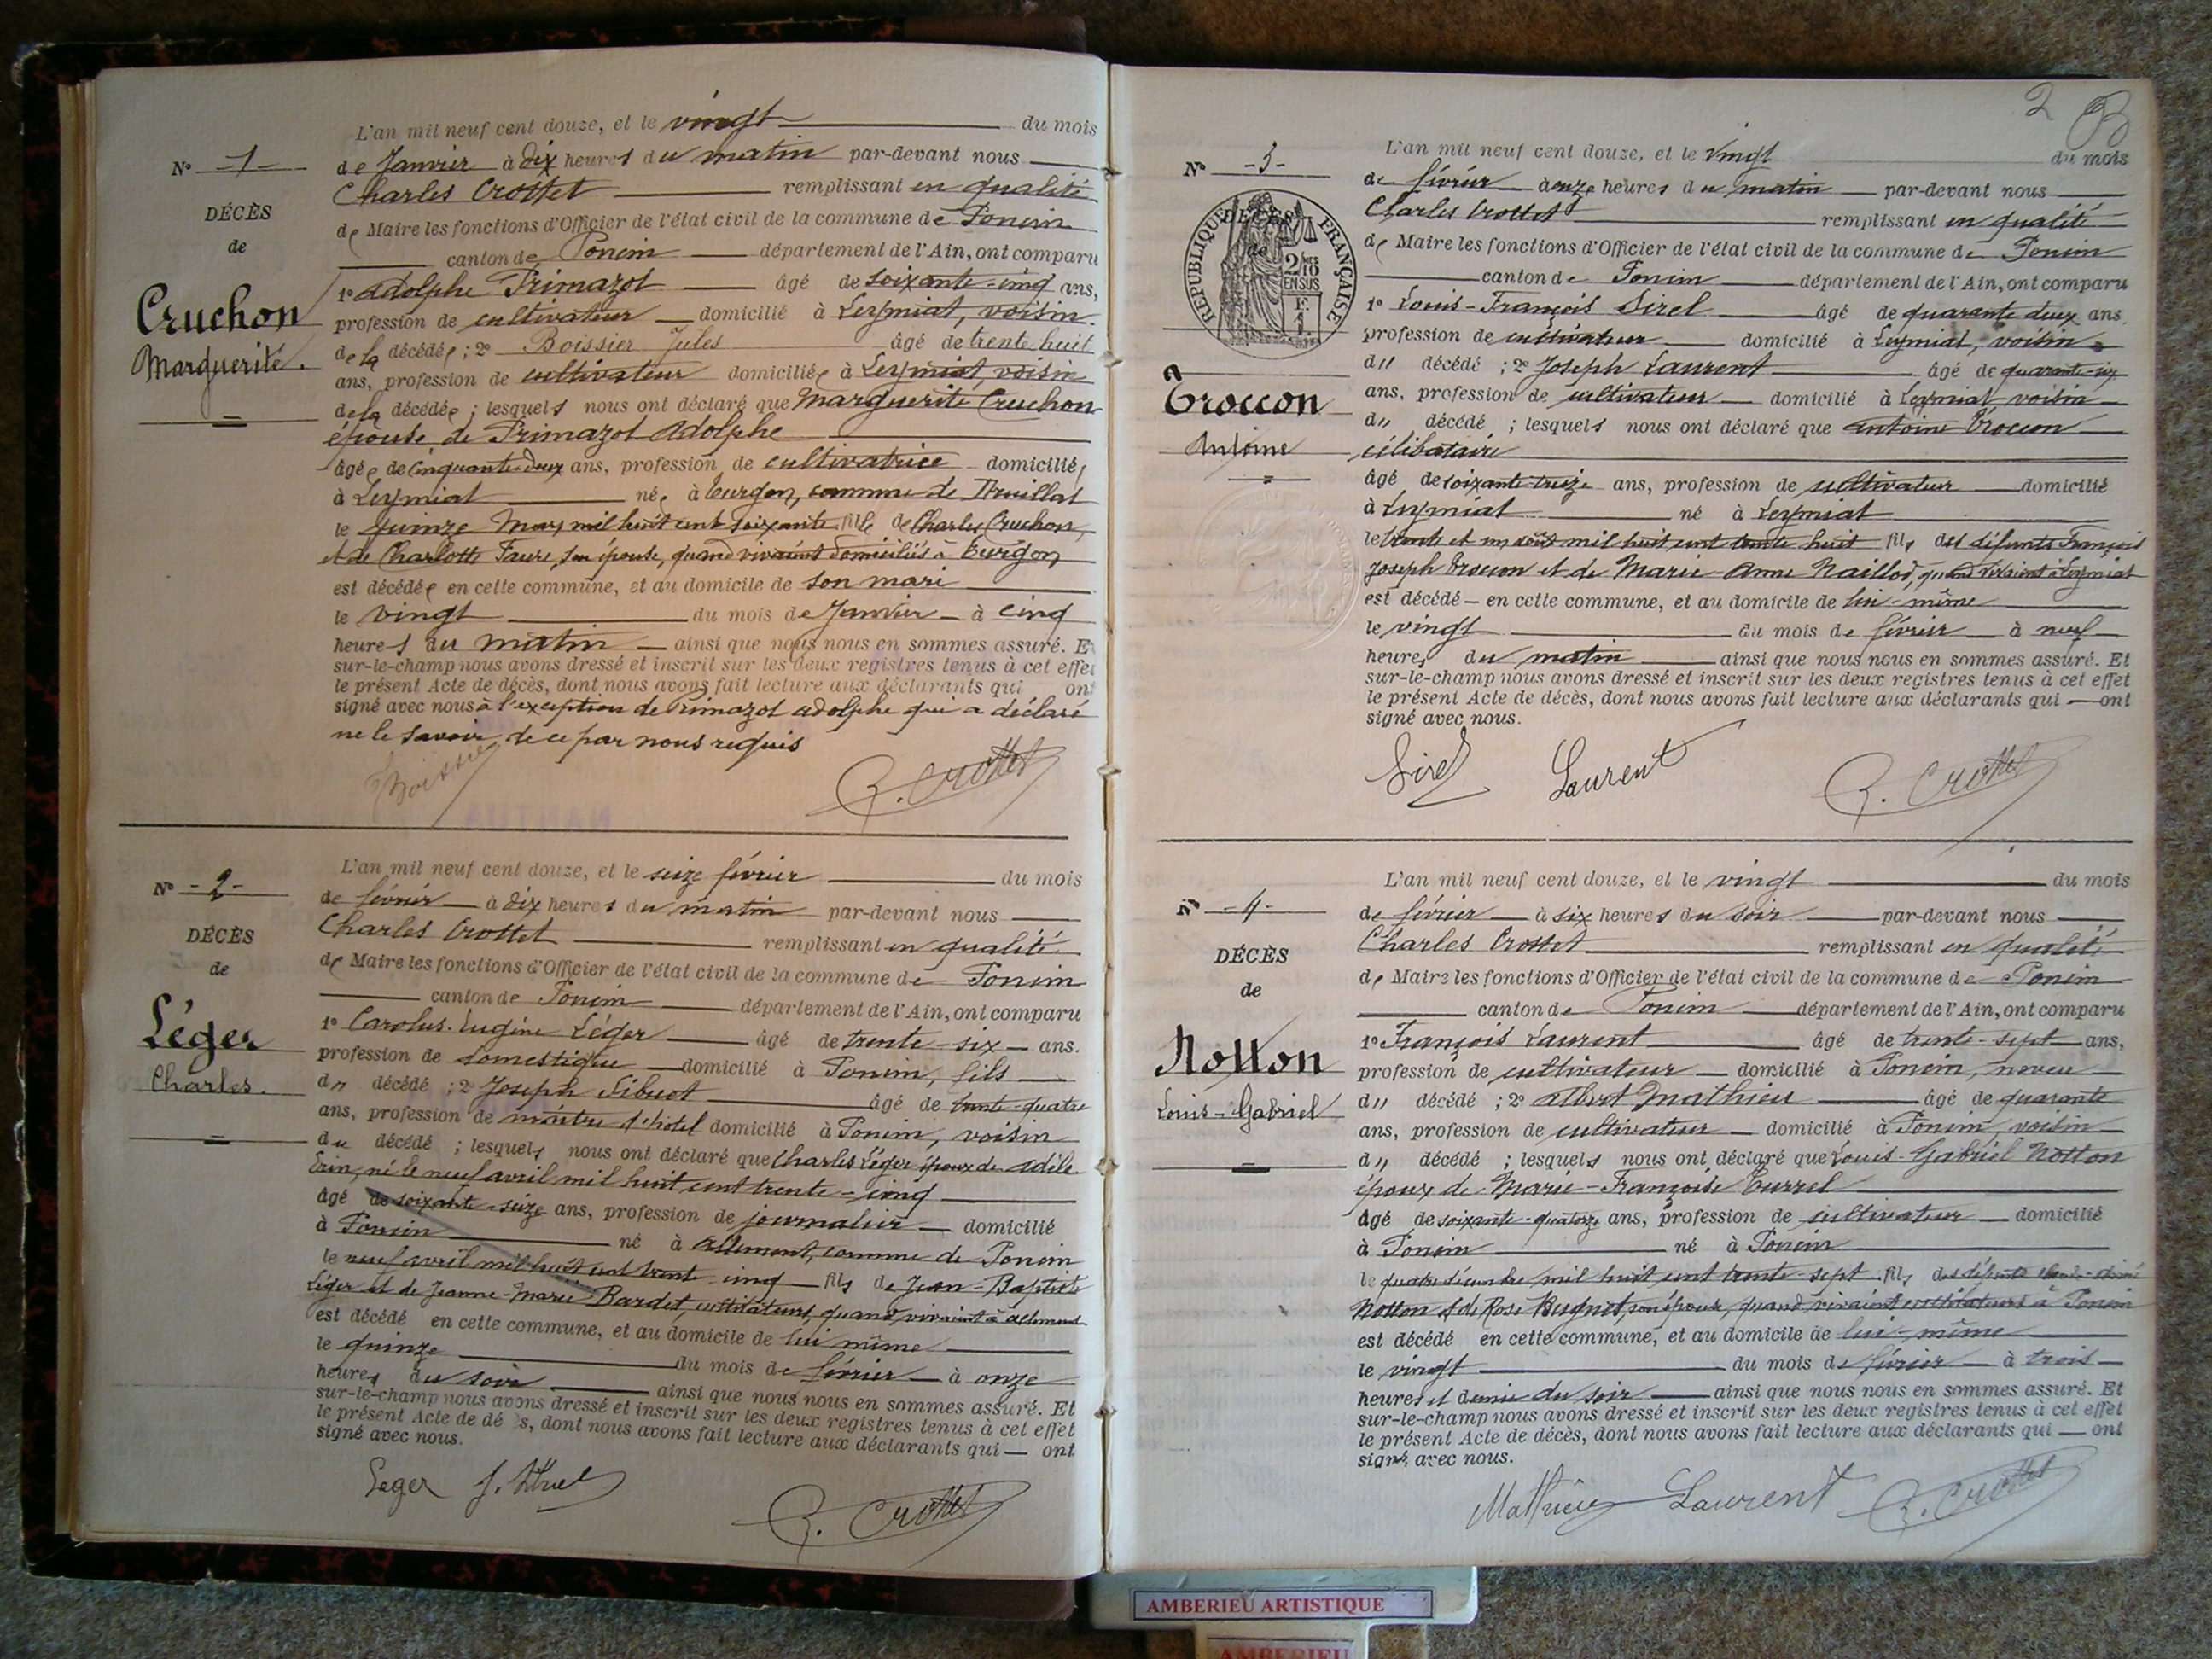 L'an mil neuf cent douze, et le vingt du mois
N° -1-
de Janvier à dix heures du matin par-devant nous
Charles Crottet remplissant en qualité
DÉCÈS
de Maire les fonctions d'Officier de l'état civil de la commune de Poncin
de
canton de Poncin département de l'Ain, ont comparu
Cruchon
Marguerite.
1° Adolphe Primazot âgé de soixante-cinq ans,
profession de cultivateur domicilié à Leymiat, voisin
de la décédée ; 2° Boissier Jules âgé de trente huit
ans, profession de cultivateur domicilié à Leymiat, voisin
de la décédée ; lesquels nous ont déclaré que Marguerite Cruchon
épouse de Primazot Adolphe
âgée de cinquante-deux ans, profession de cultivatrice domiciliée
à Leymiat née à commune de Druillat
le quinze Mars mil huit cent soixante fille de Charles Cruchon,
et de Charlotte Faure, son épouse, quand vivaient domiciliés à
est décédée en cette commune, et au domicile de son mari
le vingt du mois de Janvier à cinq
heures du matin ainsi que nous nous en sommes assuré. Et
sur-le-champ nous avons dressé et inscrit sur les deux registres tenus à cet effet
le présent Acte de décès, dont nous avons fait lecture aux déclarants qui ont
signé avec nous à l'exception de Primazot Adolphe qui a déclaré
ne le savoir, de ce par nous requis
Boissier C. Crottet
L'an mil neuf cent douze, et le seize février du mois
N° -2-
de février à dix heures du matin par-devant nous
Charles Crottet remplissant en qualité
DÉCÈS
de Maire les fonctions d'Officier de l'état civil de la commune de Poncin
de
canton de Poncin département de l'Ain, ont comparu
Léger
Charles.
1° Carolus-Eugène Léger âgé de trente-six ans.
profession de domestique domicilié à Poncin, fils
du décédé ; 2° Joseph Sibuet âgé de trente-quatre
ans, profession de maître d'hôtel domicilié à Poncin, voisin
du décédé ; lesquels nous ont déclaré que Charles Léger époux de Adèle
né le neuf avril mil huit cent trente-cinq
âgé de soixante-seize ans, profession de journalier domicilié
à Poncin né à Allement, commune de Poncin
le neuf avril mil huit cent trente-cinq fils de Jean-Baptiste
Léger et de Jeanne-Marie Bardet, cultivateurs, quand vivaient à Allement
est décédé en cette commune, et au domicile de lui même
le quinze du mois de février à onze
heures du soir ainsi que nous nous en sommes assuré. Et
sur-le-champ nous avons dressé et inscrit sur les deux registres tenus à cet effet
le présent Acte de dé s, dont nous avons fait lecture aux déclarants qui ont
signé avec nous.
Leger C. Crottet
2
L'an mil neuf cent douze, et le vingt du mois
N° -3-
de février à onze heures du matin par-devant nous
Charles Crottet remplissant en qualité
REPUBLIQUE FRANÇAISE
DÉCÈS
de
2/10 EN SUS
de Maire les fonctions d'Officier de l'état civil de la commune de Poncin
canton de Poncin département de l'Ain, ont comparu
1° Louis-François Sirel âgé de quarante deux ans
profession de cultivateur domicilié à Leymiat, voisin
du décédé ; 2° Joseph Laurent âgé de quarante-six
Troccon
Antoine
ans, profession de cultivateur domicilié à Leymiat voisin
du décédé ; lesquels nous ont déclaré que Antoine Troccon
célibataire
âgé de soixante-treize ans, profession de cultivateur domicilié
à Leymiat né à Leymiat
le trente et un août mil huit cent trente huit fils des défunts François
Joseph Troccon et de Marie-Anne Naillod, quand vivaient à Leymiat
est décédé en cette commune, et au domicile de lui-même
le vingt du mois de février à neuf
heures du matin ainsi que nous nous en sommes assuré. Et
sur-le-champ nous avons dressé et inscrit sur les deux registres tenus à cet effet
le présent Acte de décès, dont nous avons fait lecture aux déclarants qui ont
signé avec nous.
Sirel Laurent C. Crottet
L'an mil neuf cent douze, et le vingt du mois
N° -4-
de février à six heures du soir par-devant nous
Charles Crottet remplissant en qualité
DÉCÈS
de Maire les fonctions d'Officier de l'état civil de la commune de Poncin
de
canton de Poncin département de l'Ain, ont comparu
Notton
Louis-Gabriel
1° François Laurent âgé de trente-sept ans,
profession de cultivateur domicilié à Poncin, neveu
du décédé ; 2° Albert Mathieu âgé de quarante
ans, profession de cultivateur domicilié à Poncin voisin
du décédé ; lesquels nous ont déclaré que Louis-Gabriel Notton
époux de Marie-Françoise Turrel
âgé de soixante-quatorze ans, profession de cultivateur domicilié
à Poncin né à Poncin
le quatre décembre mil huit cent trente-sept fils des défunts
Notton et de Rose Bugnet, son épouse, quand vivaient cultivateurs à Poncin
est décédé en cette commune, et au domicile de lui-même
le vingt du mois de février à trois
heures et demie du soir ainsi que nous nous en sommes assuré. Et
sur-le-champ nous avons dressé et inscrit sur les deux registres tenus à cet effet
le présent Acte de décès, dont nous avons fait lecture aux déclarants qui ont
signé avec nous.
Mathieu Laurent C. Crottet
AMBERIEU ARTISTIQUE
AMBERIEU